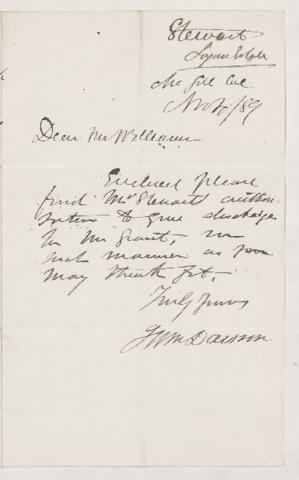 Stewart
McGill Col
Nov /89
Dear Mr Williamson
Enclosed please
find Mrs Stewarts autho
risation to give discharge
to Mr Grant, in
such manner as you
may think fit,
Truly yours
J Wm Dawson